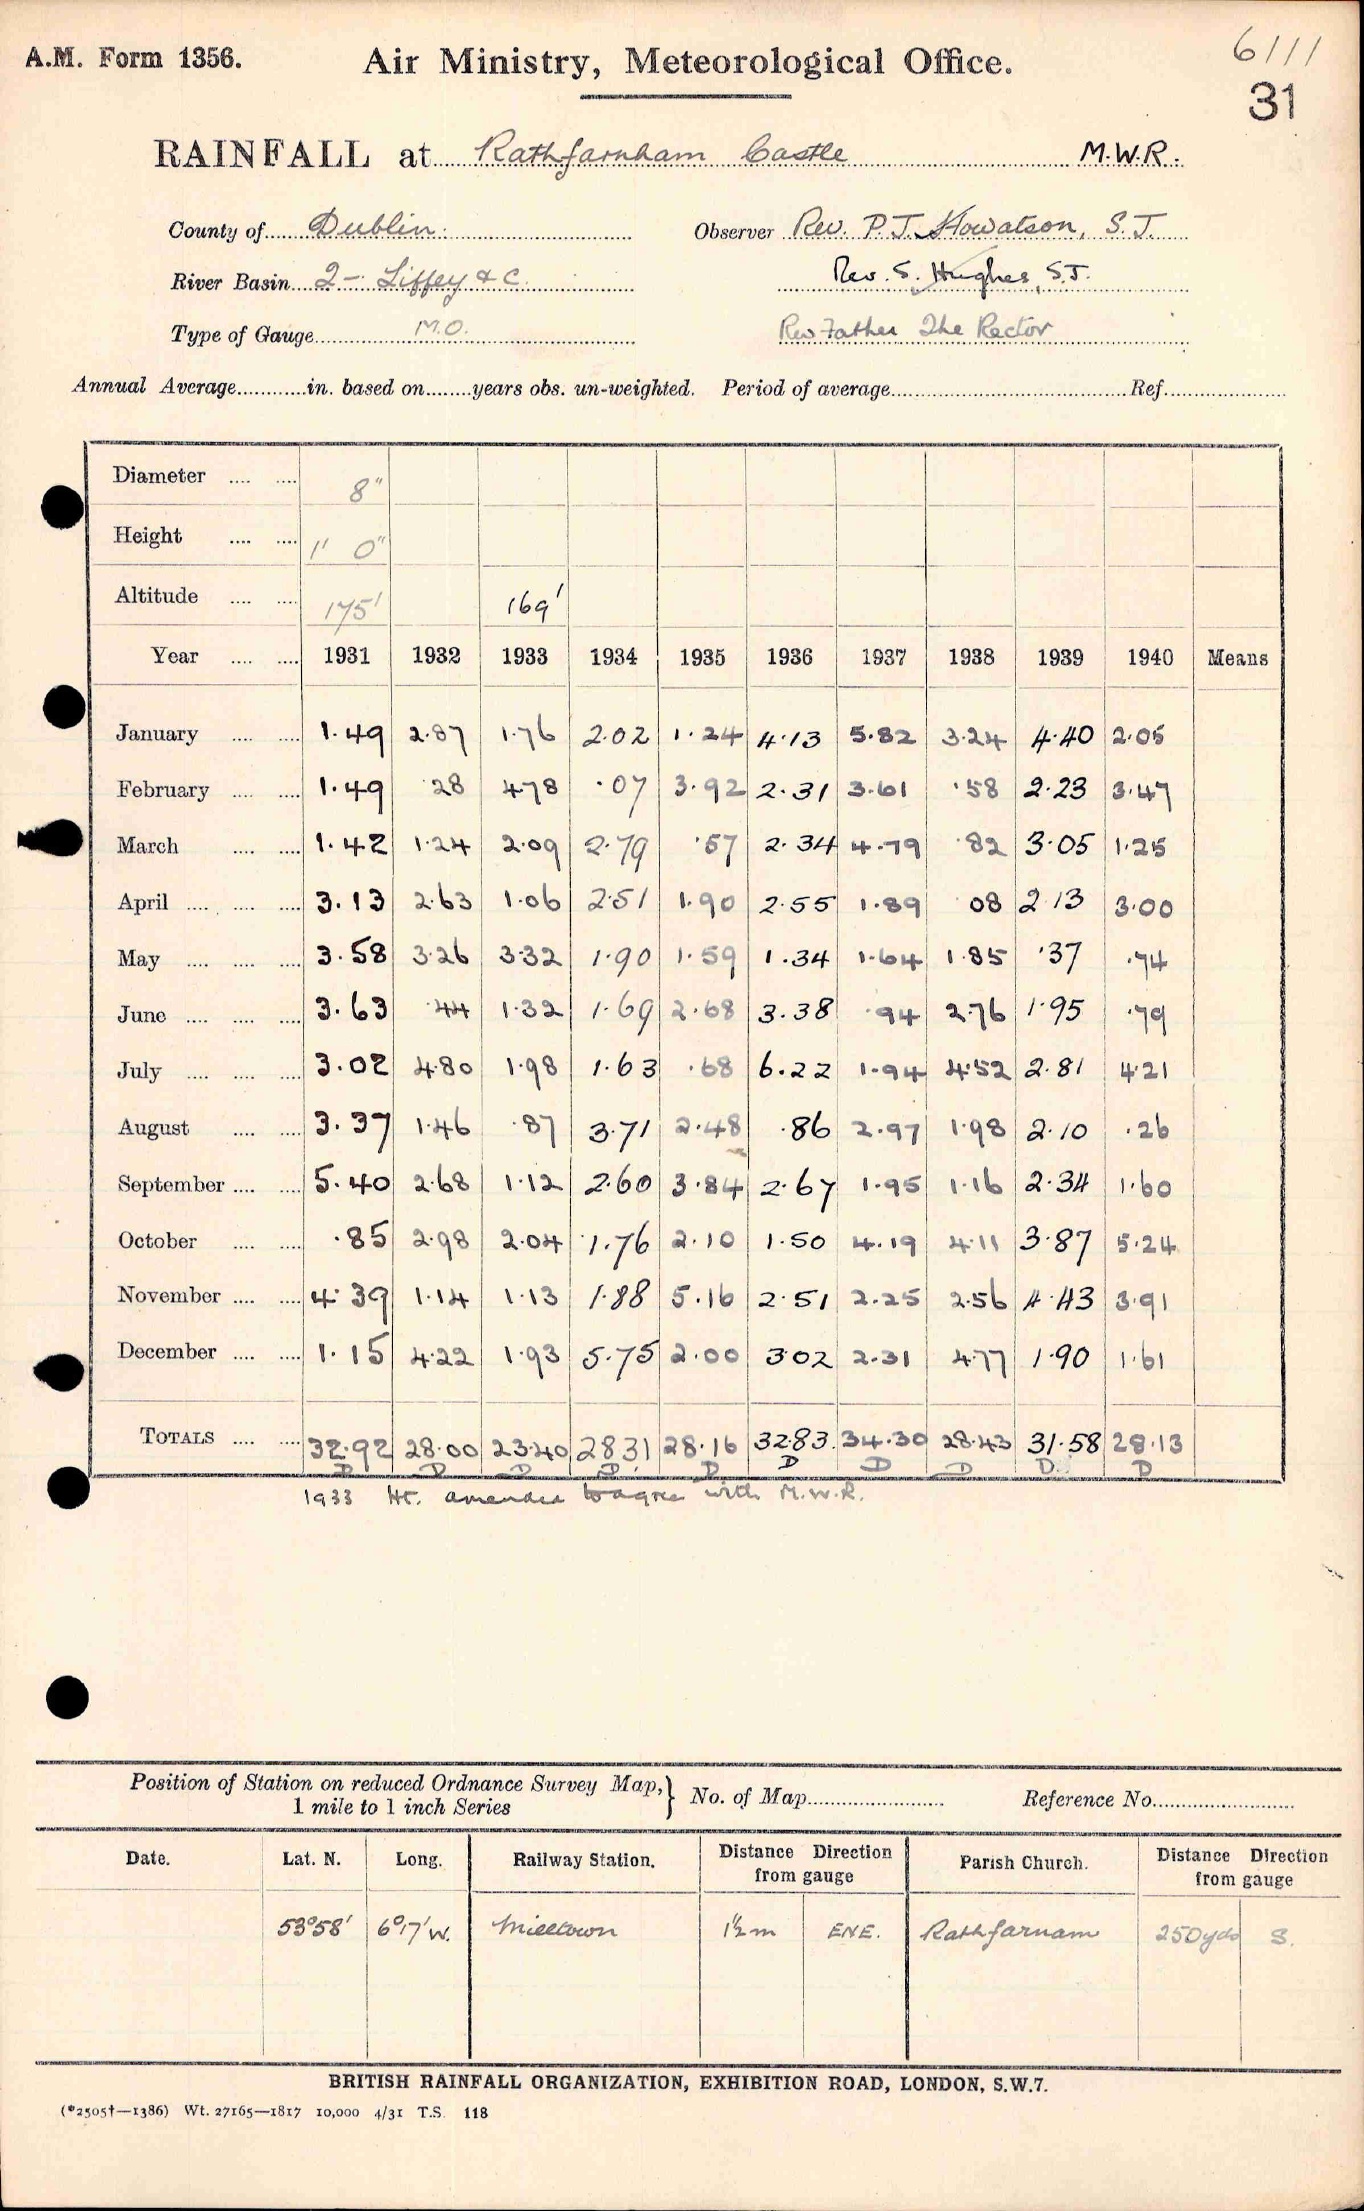 A.M. Form 1356.
Air Ministry, Meteorological Office.
6111
31
RAINFALL at Rathfarnham Castle M.W.R.
County of Dublin. Observer Rev. P.J. Howatson, S.J.
River Basin 2 — Liffey & C. Rev. S. Hughes, S.J.
Type of Gauge M.O. Rev Father The Rector
Annual Average in. based on years obs. un-weighted. Period of average Ref.
Diameter 8"
Height 1' 0"
Altitude 175' 169'
Year 1931 1932 1933 1934 1935 1936 1937 1938 1939 1940 Means
January 1.49 2.87 1.76 2.02 1.24 4.13 5.82 3.24 4.40 2.05
February 1.49 .28 4.78 .07 3.92 2.31 3.61 .58 2.23 3.47
March 1.42 1.24 2.09 2.79 .57 2.34 4.79 .82 3.05 1.25
April 3.13 2.63 1.06 2.51 1.90 2.55 1.89 08 2.13 3.00
May 3.58 3.26 3.32 1.90 1.59 1.34 1.64 1.85 .37 .74
June 3.63 .44 1.32 1.69 2.68 3.38 .94 2.76 1.95 .79
July 3.02 4.80 1.98 1.63 .68 6.22 1.94 4.52 2.81 4.21
August 3.37 1.46 .87 3.71 2.48 .86 2.97 1.98 2.10 .26
September 5.40 2.68 1.12 2.60 3.84 2.67 1.95 1.16 2.34 1.60
October .85 2.98 2.04 1.76 2.10 1.50 4.19 4.11 3.87 5.24
November 4.39 1.14 1.13 1.88 5.16 2.51 2.25 2.56 4.43 3.91
December 1.15 4.22 1.93 5.75 2.00 3.02 2.31 4.77 1.90 1.61
TOTALS 32.92 28.00 23.40 28.31 28.16 32.83 34.30 28.43 31.58 28.13
D D D D D D D D D D
1933 Ht. amended to agree with M.W.R.
Position of Station on reduced Ordnance Survey Map, } No. of Map Reference No.
1 mile to 1 inch Series
Date. Lat. N. Long. Railway Station. Distance Direction from gauge Parish Church. Distance Direction from gauge
53°58' 6°17'W. Milltown 1½m ENE. Rathfarnam 250yds S.
BRITISH RAINFALL ORGANIZATION, EXHIBITION ROAD, LONDON, S.W.7.
(*2505†—1386) Wt. 27165—1817 10,000 4/31 T.S. 118